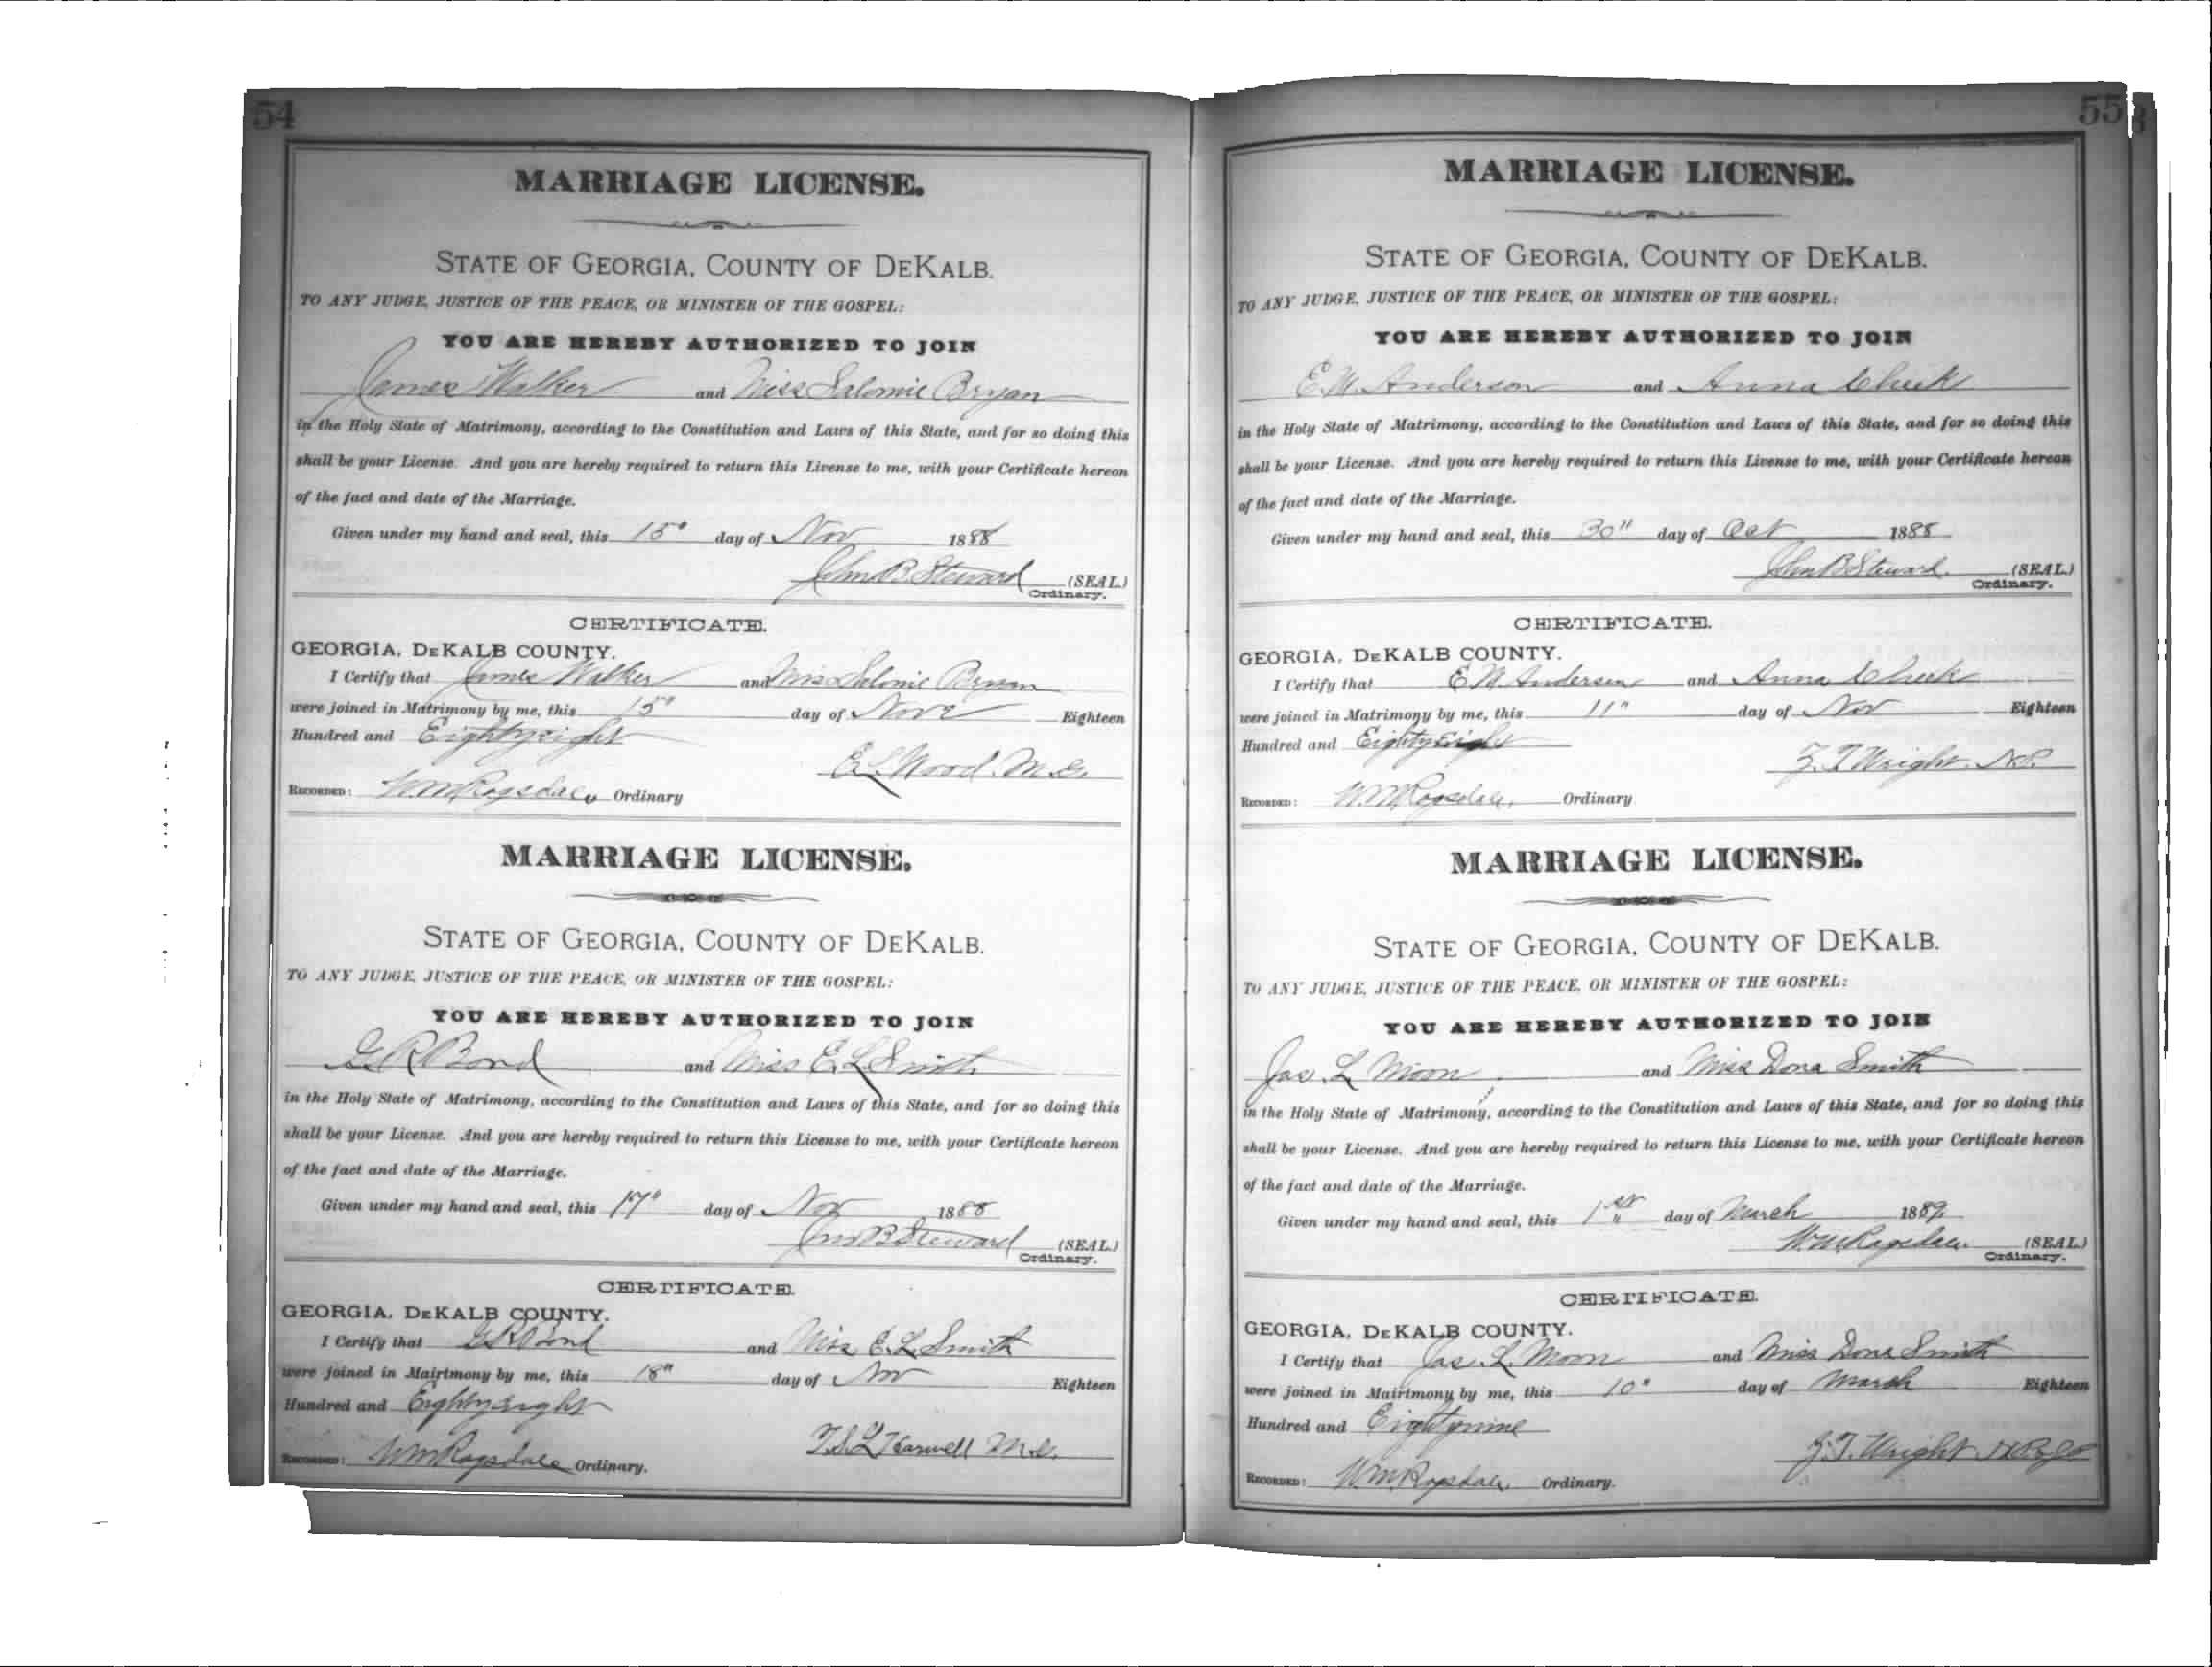 54
MARRIAGE LICENSE.
STATE OF GEORGIA, COUNTY OF DEKALB.
TO ANY JUDGE, JUSTICE OF THE PEACE, OR MINISTER OF THE GOSPEL:
YOU ARE HEREBY AUTHORIZED TO JOIN
James Walker and Miss Salomie Bryan
in the Holy State of Matrimony, according to the Constitution and Laws of this State, and for so doing this
shall be your License. And you are hereby required to return this License to me, with your Certificate hereon
of the fact and date of the Marriage.
Given under my hand and seal, this 15" day of Nov 1888
John B Steward (SEAL.)
Ordinary.
CERTIFICATE.
GEORGIA, DEKALB COUNTY.
I Certify that James Walker and Miss Salomie Bryan
were joined in Matrimony by me, this 15" day of Nov Eighteen
Hundred and Eighty eight
E L Wood. M.G.
RECORDED: W M Ragsdale, Ordinary
MARRIAGE LICENSE.
STATE OF GEORGIA, COUNTY OF DEKALB.
TO ANY JUDGE, JUSTICE OF THE PEACE, OR MINISTER OF THE GOSPEL:
YOU ARE HEREBY AUTHORIZED TO JOIN
G R Bond and Miss E L Smith
in the Holy State of Matrimony, according to the Constitution and Laws of this State, and for so doing this
shall be your License. And you are hereby required to return this License to me, with your Certificate hereon
of the fact and date of the Marriage.
Given under my hand and seal, this 17" day of Nov 1888
Jno B Steward (SEAL.)
Ordinary.
CERTIFICATE.
GEORGIA, DEKALB COUNTY.
I Certify that G R Bond and Miss E. L. Smith
were joined in Mairtmony by me, this 18" day of Nov Eighteen
Hundred and Eighty eight
T. S. L. Harwell M.G.
RECORDED: W M Ragsdale Ordinary.
55
MARRIAGE LICENSE.
STATE OF GEORGIA, COUNTY OF DEKALB.
TO ANY JUDGE, JUSTICE OF THE PEACE, OR MINISTER OF THE GOSPEL:
YOU ARE HEREBY AUTHORIZED TO JOIN
E. M. Anderson and Anna Cheek
in the Holy State of Matrimony, according to the Constitution and Laws of this State, and for so doing this
shall be your License. And you are hereby required to return this License to me, with your Certificate hereon
of the fact and date of the Marriage.
Given under my hand and seal, this 30" day of Oct 1888
John B Steward. (SEAL.)
Ordinary.
CERTIFICATE.
GEORGIA, DEKALB COUNTY.
I Certify that E M Anderson and Anna Cheek
were joined in Matrimony by me, this 11" day of Nov Eighteen
Hundred and Eighty Eight
Z. T. Wright. N.P.
RECORDED: W. M Ragsdale, Ordinary
MARRIAGE LICENSE.
STATE OF GEORGIA, COUNTY OF DEKALB.
TO ANY JUDGE, JUSTICE OF THE PEACE, OR MINISTER OF THE GOSPEL:
YOU ARE HEREBY AUTHORIZED TO JOIN
Jas. L Moon and Miss Dora Smith
in the Holy State of Matrimony, according to the Constitution and Laws of this State, and for so doing this
shall be your License. And you are hereby required to return this License to me, with your Certificate hereon
of the fact and date of the Marriage.
Given under my hand and seal, this 1st day of March 1889
W. M Ragsdale. (SEAL.)
Ordinary.
CERTIFICATE.
GEORGIA, DEKALB COUNTY.
I Certify that Jas. L. Moon and Miss Dora Smith
were joined in Mairtmony by me, this 10" day of March Eighteen
Hundred and Eighty nine
Z. T. Wright
RECORDED: W. M Ragsdale, Ordinary.